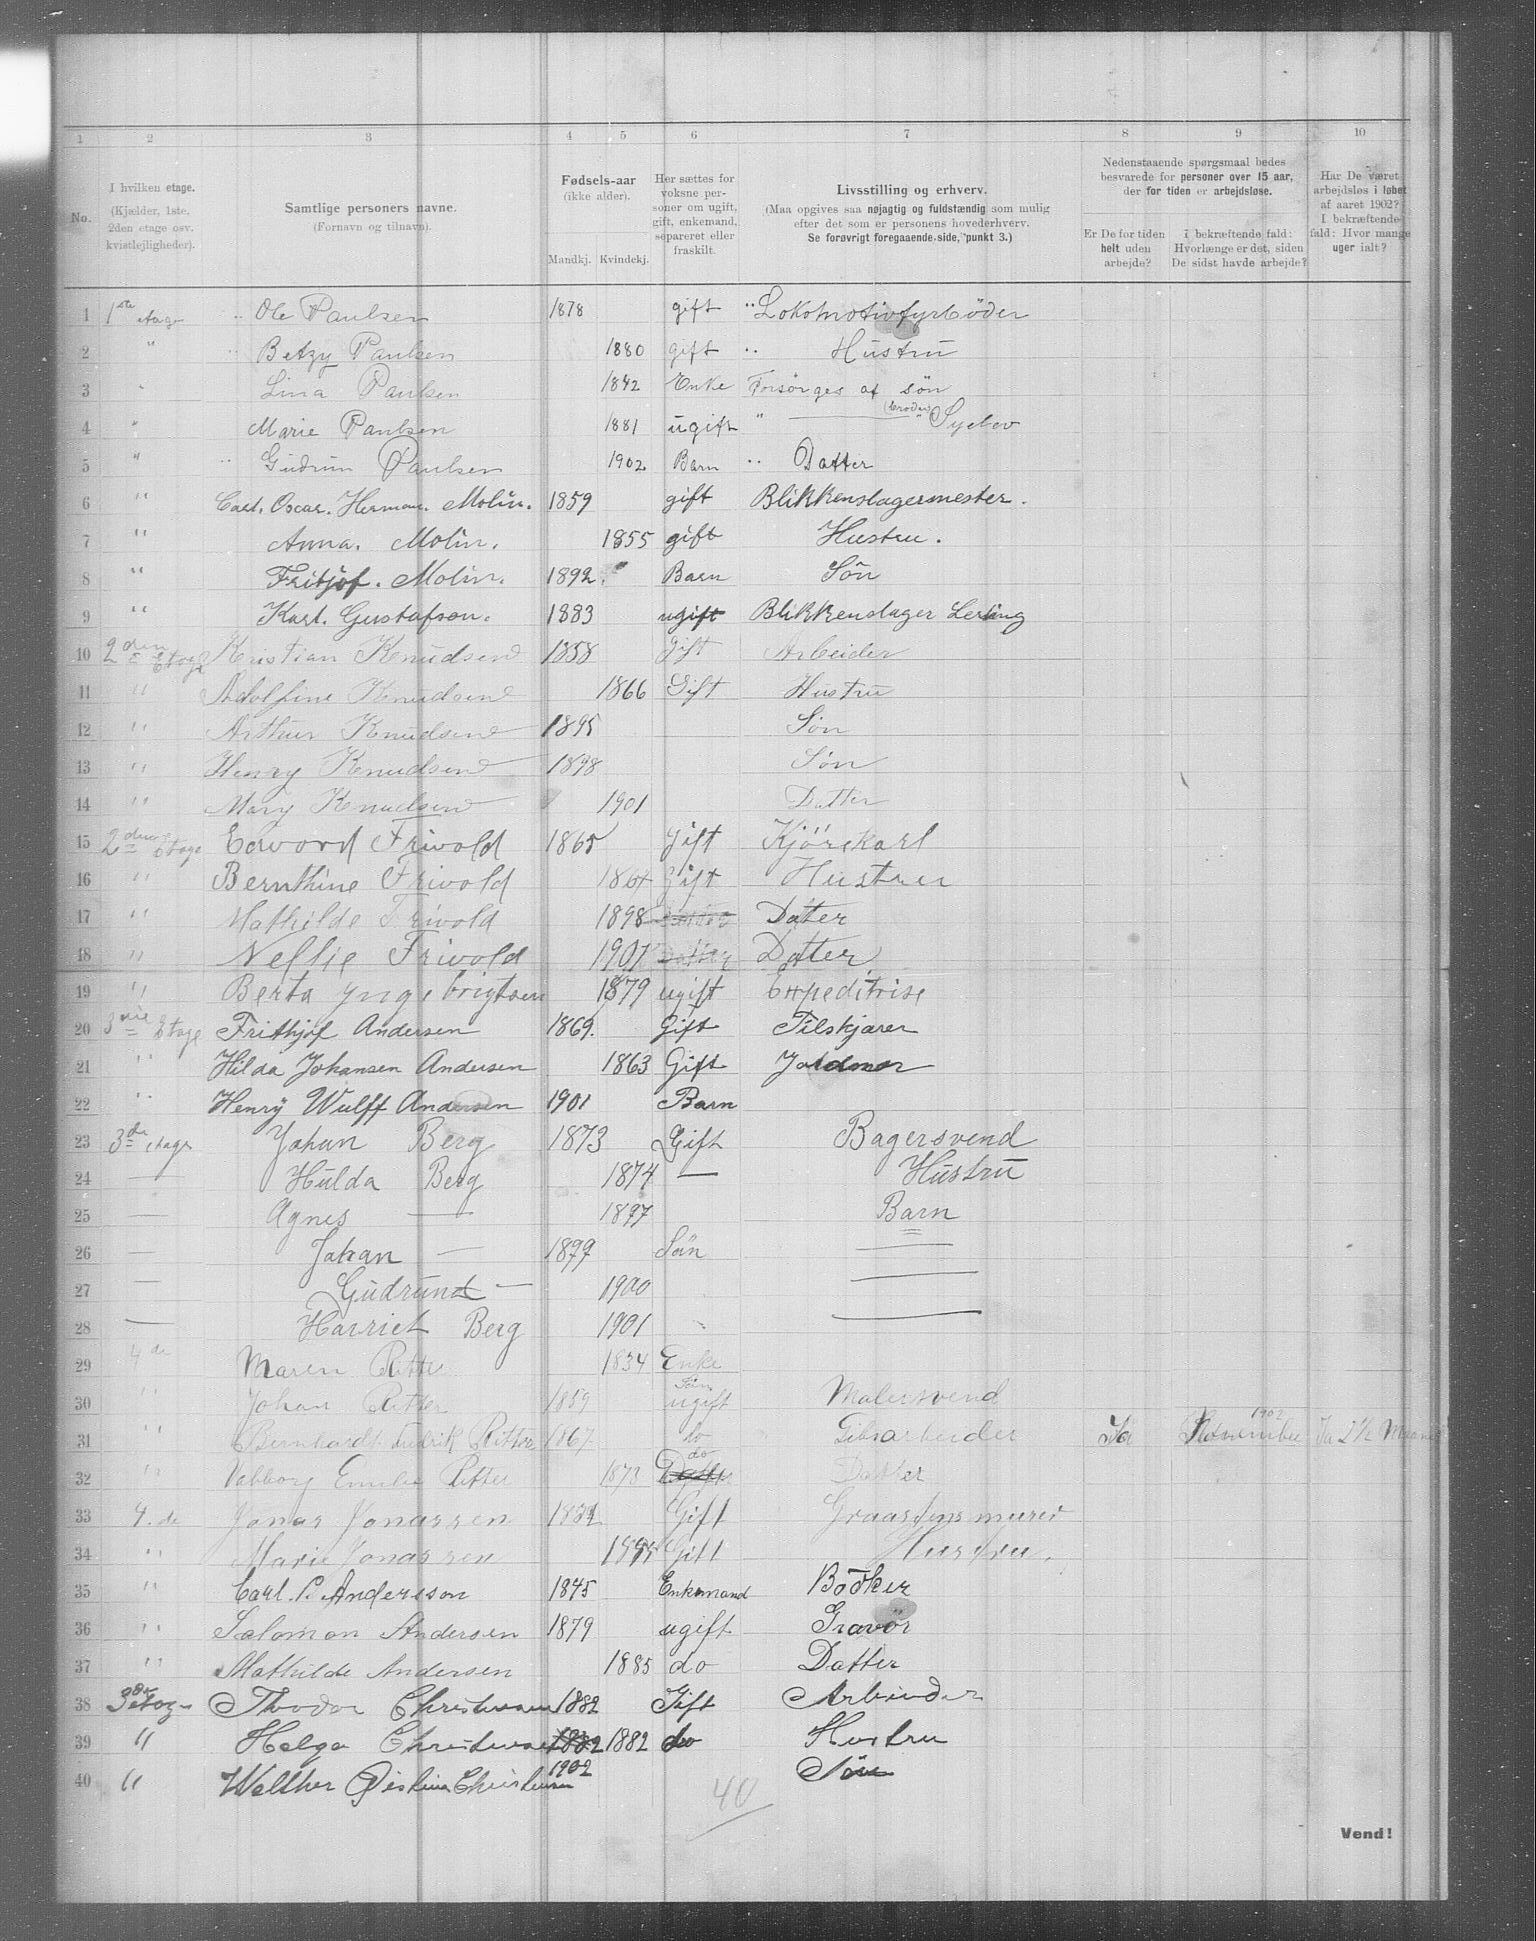 1 2 3 4 5 6 7 8 9 10
No. I hvilken etage. (Kjælder, 1ste, 2den etage osv. kvistlejligheder). Samtlige personers navne. (Fornavn og tilnavn). Fødsels-aar (ikke alder). Mandkj. Kvindekj. Her sættes for voksne personer om ugift, gift, enkemand, separeret eller fraskilt. Livsstilling og erhverv. (Maa opgives saa nøjagtig og fuldstændig som mulig efter det som er personens hovederhverv. Se forøvrigt foregaaende side, punkt 3.) Nedenstaaende spørgsmaal bedes besvarede for personer over 15 aar, der for tiden er arbejdsløse. Er De for tiden helt uden arbejde? I bekræftende fald: Hvorlænge er det, siden De sidst havde arbejde? Har De været arbejdsløs i løbet af aaret 1902? I bekræftende fald: Hvor mange uger ialt?
1 1ste etage " Ole Paulsen 1878 gift " Lokomotivfyrböder
2 " " Betzy Paulsen 1880 gift " Hustru
3 " Lina Paulsen 1842 Enke Forsörges af sön
4 " Marie Paulsen 1881 ugift " — (broder) Syebev
5 " " Gudrun Paulsen 1902 Barn " Datter
6 " Carl. Oscar. Herman. Molin. 1859 gift Blikkenslagermester.
7 " Anna. Molin. 1855 gift Hustru.
8 " Fritjof. Molin. 1892. Barn Sön
9 " Karl. Gustafson. 1883 ugift Blikkenslager Lerling
10 2den Etage Kristian Knudsen 1858 Gift Arbeider
11 " Adolfine Knudsen 1866 Gift Hustru
12 " Arthur Knudsen 1895 Sön
13 " Henry Knudsen 1898 Sön
14 " Mary Knudsen 1901 Datter
15 2den Etage Edvard Frivold 1865 Gift Kjörekarl
16 " Bernthine Frivold Gift Hustru
17 " Mathilde Frivold 1898 Dater
18 " Nellie Frivold 1901 Datter Dater
19 " Berta Yngebrigtsen 1879 ugift Expeditrise
20 3die Etage Frithjof Andersen 1869. Gift Tilskjærer
21 " Hilda Johansen Andersen 1863 Gift Jordmor
22 " Henry Wulff Andersen 1901 Barn
23 3de etage Johan Berg 1873 Gift Bagersvend
24 — Hulda Berg 1874 — Hustru
25 — Agnes — 1897 Barn
26 — Johan — 1899 Sön —
27 — Gudrund — 1900 —
28 — Harriet Berg 1901 —
29 4de Maren Ritter 1834 Enke
30 " Johan Ritter 1859 Sön ugift Malersvend
31 " Bernhardt Fredrik Ritter 1867 do Gibsarbeider Ja November 1902 Ja 2½ Maaned
32 " Valborg Emilie Ritter 1873 do Datter Datter
33 4.de Jonas Jonassen Gift Graastensmurer
34 " Marie Jonassen Gift Hustru.
35 " Carl. P. Andersson 1845 Enkemand Bödker
36 " Salomon Andersen 1879 ugift Gravör
37 " Mathilde Andersen 1885 do Datter
38 3die etage Thodor Christensen 1882 Gift Arbeider
39 " Helga Christensen 1882 1882 do Hustru
40 " Walther Christensen 1902 Sön
40
Vend!